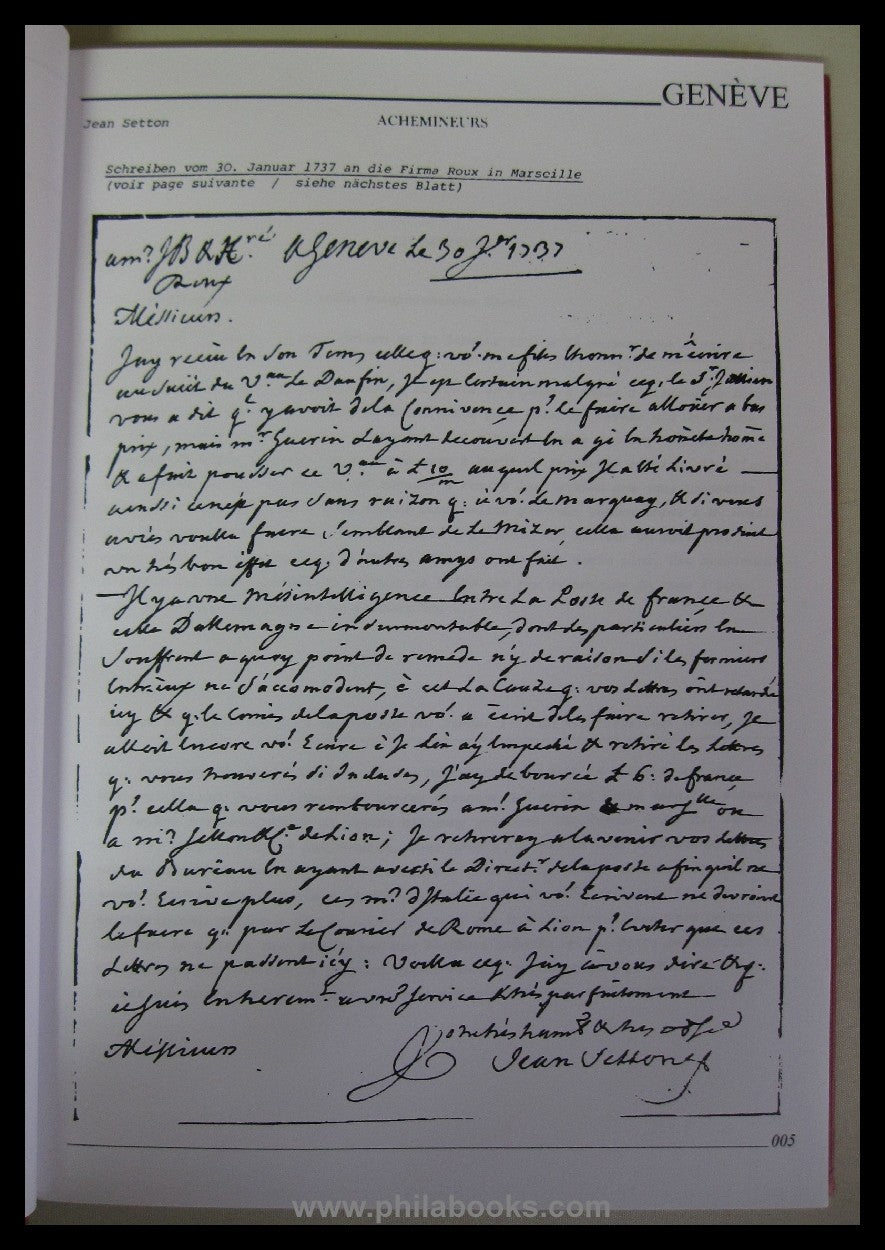 GENÈVE
Jean Setton
ACHEMINEURS
Schreiben vom 30. Januar 1737 an die Firma Roux in Marseille
(voir page suivante / siehe nächstes Blatt)
JB & A Geneve Le 30 J.er 1737
Roux
Méssieurs.
Jay reciu En Son Tems celle q: vo.s me fites Lhonn.r de mécrire
au Sujet du V.au Le Daufin, Je est Certain malgré ceq: le S.r
vous a dit q.l y avoit de la Connivence p.r le faire allouer a bas
prix, mais m.r Guerin Layant decouvert En a gi En
& a fait pousser ce V.au à £ 10/m auquel prix Il a été Livré
ainssi pas Sans raizon q: vo.s Le marquay, & Si vous
aviés voullu faire Semblant de Le cella auroit produit
un trés bon effet ceq: d'autres amys ont fait.
Il y a une Mésintelligence Entre La Poste de france &
celle Dallemagne insurmontable, dont des particuliers En
Souffrent a quoy point de remede n'y de raison Si les fermiers
Entréux ne S'accomodent, cet La Cauze q: vos Lettres ont retardé
icy & q: le Comis de la poste vo.s a écrit de les faire retirer, Je
alloit Encore vo.s Ecrire Je Len ay Empeché & retiré les Lettres
q: vous trouverés Incluses, J'ay débourcé £ 6: de france
p.r cella q: vous rembourcerés a m.r Guerin marss.lle ou
a m.rs Setton & C.e de Lion; Je retireray a lavenir vos Lettres
du Bureau En ayant averti le Direct.r de la poste afin quil ne
vo.s Ecrive plus, ces m.rs d'Italie qui vo.s Ecrivent ne devroient
le faire q: par Le Courier de Rome à Lion p.r Eviter que ces
Lettres ne passent icy: Voella ceq: J'ay à vous dire & q:
je Suis Entierem.t a vre Service & trés parfaitement
Méssieurs
Jean Setton
005
www.philabooks.com